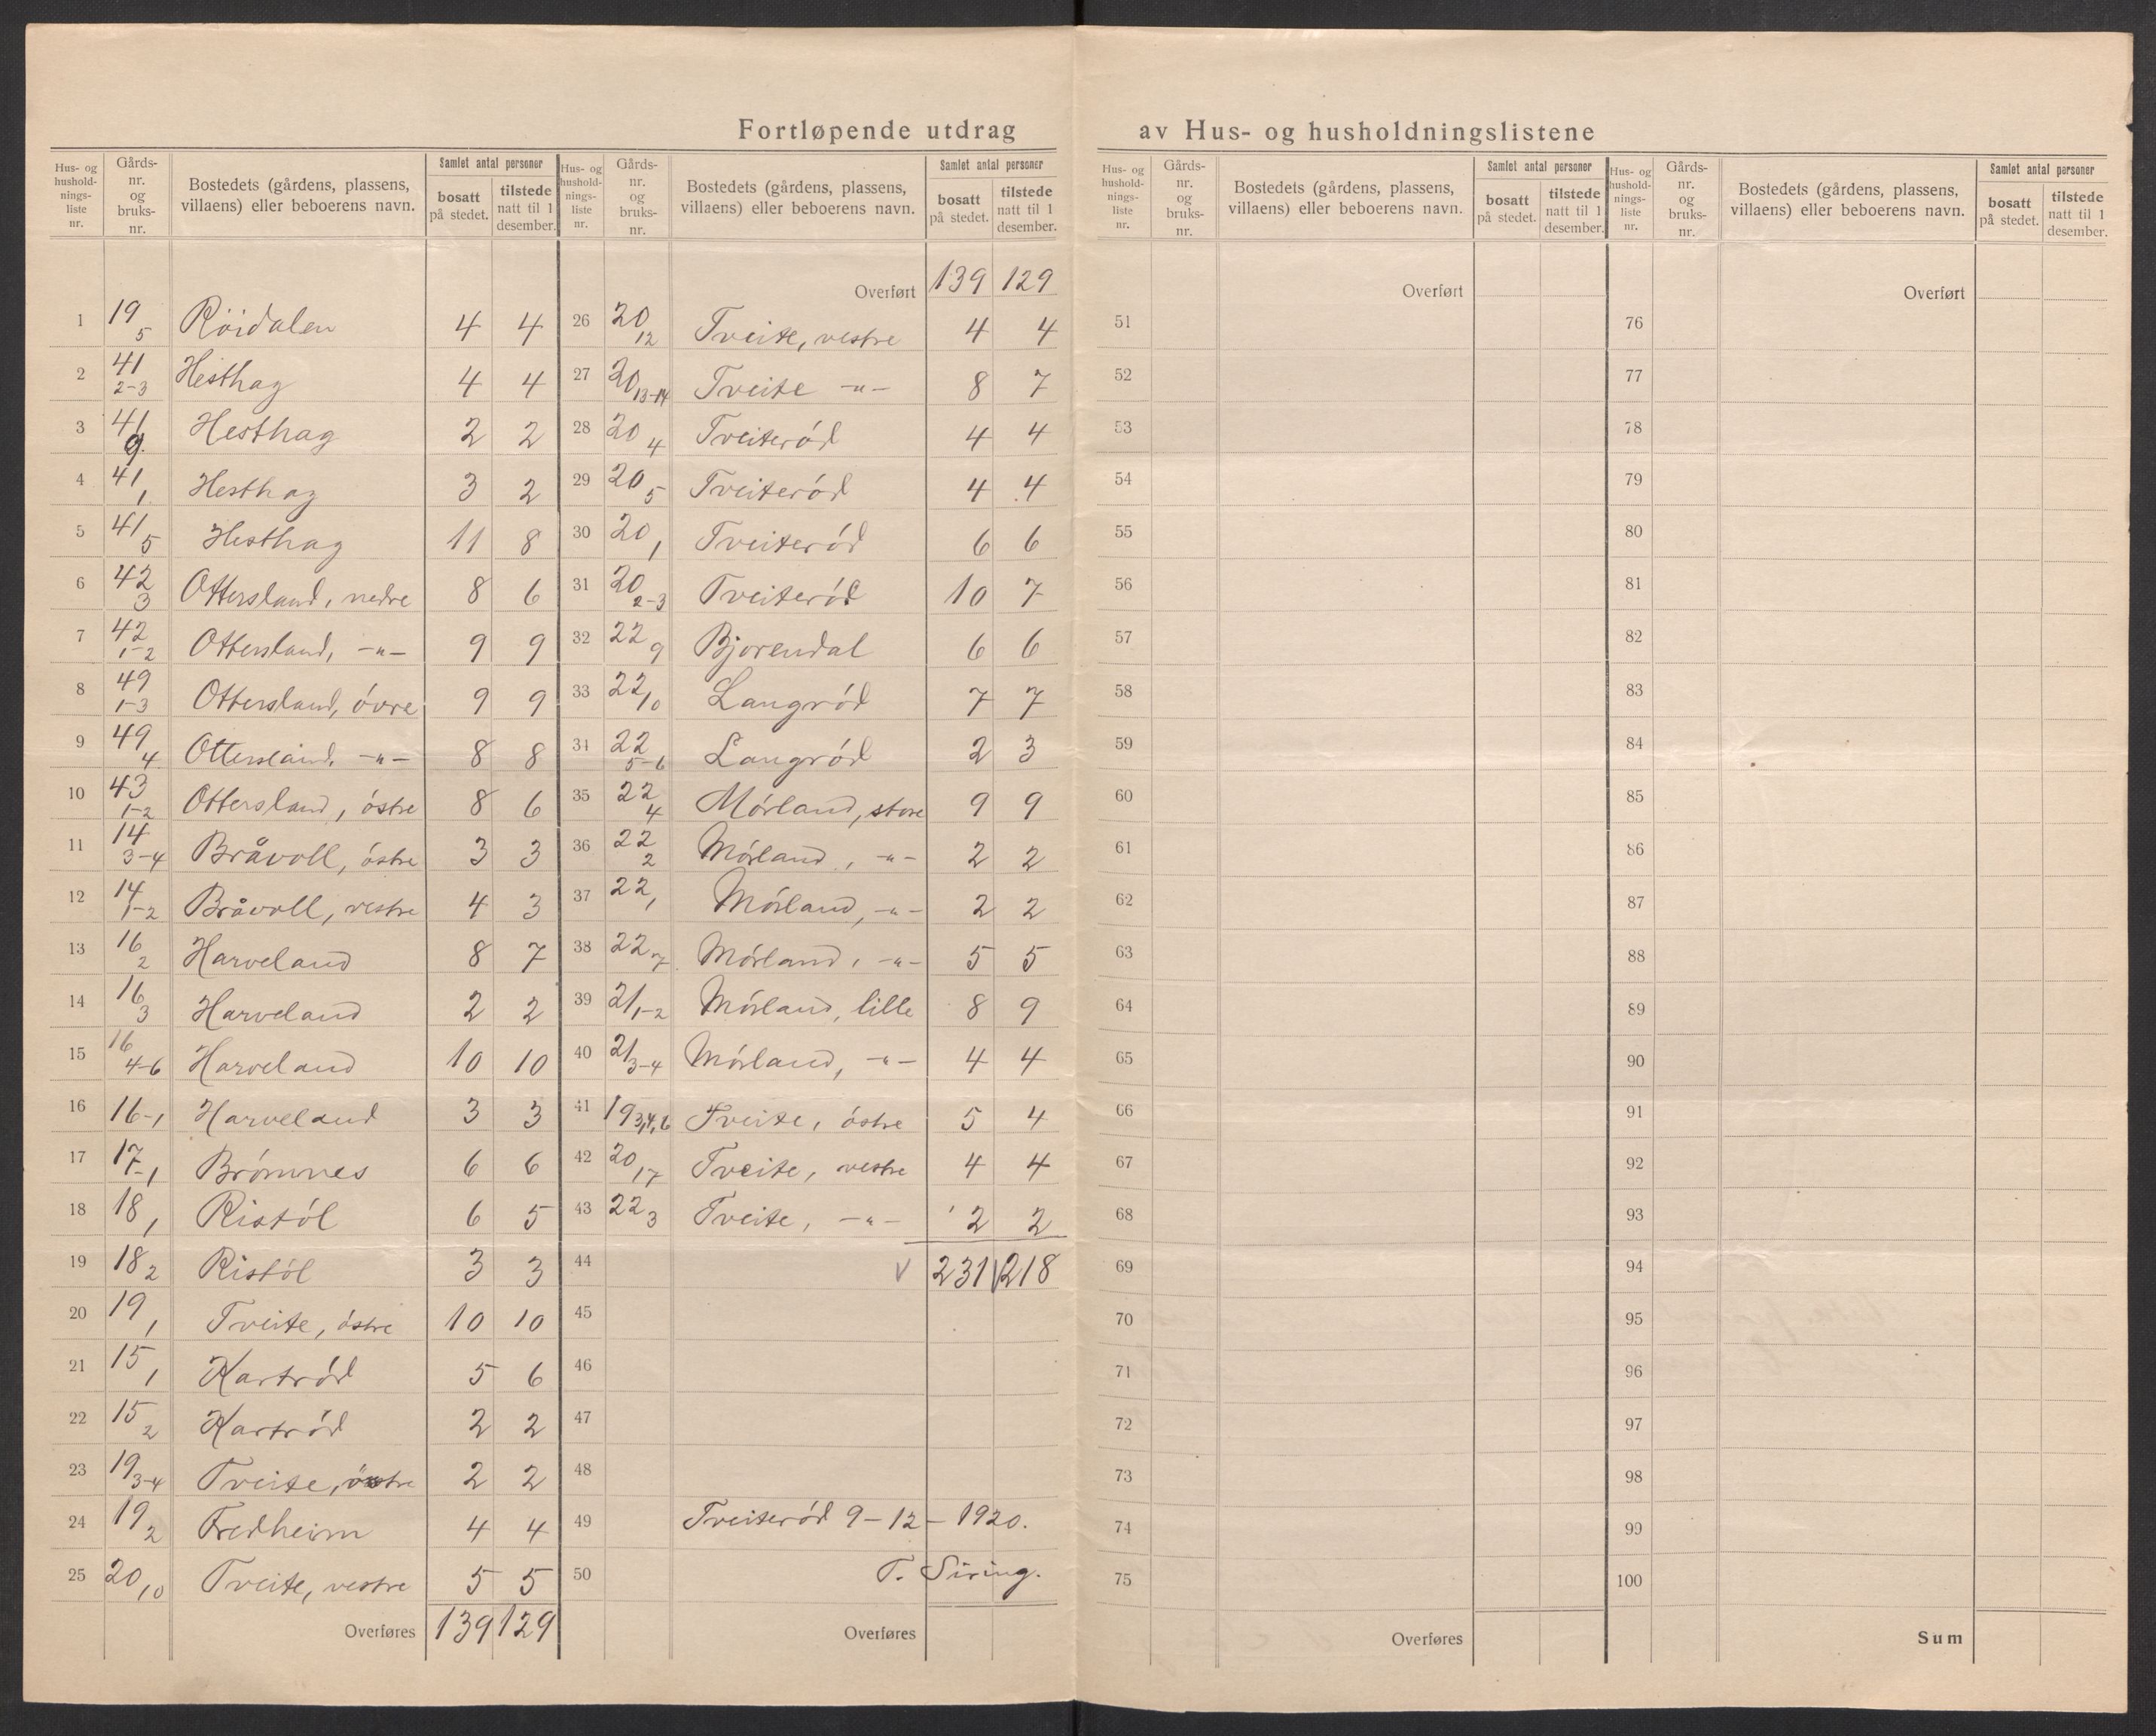 Fortløpende utdrag av Hus- og husholdningslistene
Hus- og husholdnings- liste nr. | Gårds- nr. og bruks- nr. | Bostedets (gårdens, plassens, villaens) eller beboerens navn. | Samlet antal personer bosatt på stedet. | tilstede natt til 1 desember.
1 | 19 5 | Röidalen | 4 | 4
2 | 41 2-3 | Hesthag | 4 | 4
3 | 41 9 | Hesthag | 2 | 2
4 | 41 1 | Hesthag | 3 | 2
5 | 41 5 | Hesthag | 11 | 8
6 | 42 3 | Ottersland, nedre | 8 | 6
7 | 42 1-2 | Ottersland, -"- | 9 | 9
8 | 49 1-3 | Ottersland, óvre | 9 | 9
9 | 49 4 | Ottersland, -"- | 8 | 8
10 | 43 1-2 | Ottersland, óstre | 8 | 6
11 | 14 3-4 | Bråvoll, óstre | 3 | 3
12 | 14 1-2 | Bråvoll, vestre | 4 | 3
13 | 16 2 | Harveland | 8 | 7
14 | 16 3 | Harveland | 2 | 2
15 | 16 4-6 | Harveland | 10 | 10
16 | 16-1 | Harveland | 3 | 3
17 | 17-1 | Brómnes | 6 | 6
18 | 18 1 | Ristól | 6 | 5
19 | 18 2 | Ristól | 3 | 3
20 | 19 1 | Tveite, óstre | 10 | 10
21 | 15 1 | Kartród | 5 | 6
22 | 15 2 | Kartród | 2 | 2
23 | 19 3-4 | Tveite, östre | 2 | 2
24 | 19 2 | Fredheim | 4 | 4
25 | 20 10 | Tveite, vestre | 5 | 5
Overføres | 139 | 129
Hus- og hushold- nings- liste nr. | Gårds- nr. og bruks- nr. | Bostedets (gårdens, plassens, villaens) eller beboerens navn. | Samlet antal personer bosatt på stedet. | tilstede natt til 1 desember.
Overført | 139 | 129
26 | 20 12 | Tveite, vestre | 4 | 4
27 | 20 13-14 | Tveite -"- | 8 | 7
28 | 20 4 | Tveiteród | 4 | 4
29 | 20 5 | Tveiteród | 4 | 4
30 | 20 1 | Tveiteród | 6 | 6
31 | 20 2-3 | Tveiteród | 10 | 7
32 | 22 9 | Bjorendal | 6 | 6
33 | 22 10 | Langród | 7 | 7
34 | 22 5-6 | Langród | 2 | 3
35 | 22 4 | Mórland, store | 9 | 9
36 | 22 2 | Mórland, -"- | 2 | 2
37 | 22 1 | Mórland, -"- | 2 | 2
38 | 22 7 | Mórland, -"- | 5 | 5
39 | 21 1-2 | Mórland, lille | 8 | 9
40 | 21 3-4 | Mórland, -"- | 4 | 4
41 | 19 3,4,6 | Tveite, óstre | 5 | 4
42 | 20 17 | Tveite, vestre | 4 | 4
43 | 22 3 | Tveite, -"- | 2 | 2
44 | V 231 V 218
45
46
47
48
49 | Tveiteród 9-12-1920.
50 | T. Siring.
Overføres
Hus- og hushold- nings- liste nr. | Gårds- nr. og bruks- nr. | Bostedets (gårdens, plassens, villaens) eller beboerens navn. | Samlet antal personer bosatt på stedet. | tilstede natt til 1 desember.
Overført
51
52
53
54
55
56
57
58
59
60
61
62
63
64
65
66
67
68
69
70
71
72
73
74
75
Overføres
Hus- og hushold- nings- liste nr. | Gårds- nr. og bruks- nr. | Bostedets (gårdens, plassens, villaens) eller beboerens navn. | Samlet antal personer bosatt på stedet. | tilstede natt til 1 desember.
Overført
76
77
78
79
80
81
82
83
84
85
86
87
88
89
90
91
92
93
94
95
96
97
98
99
100
Sum